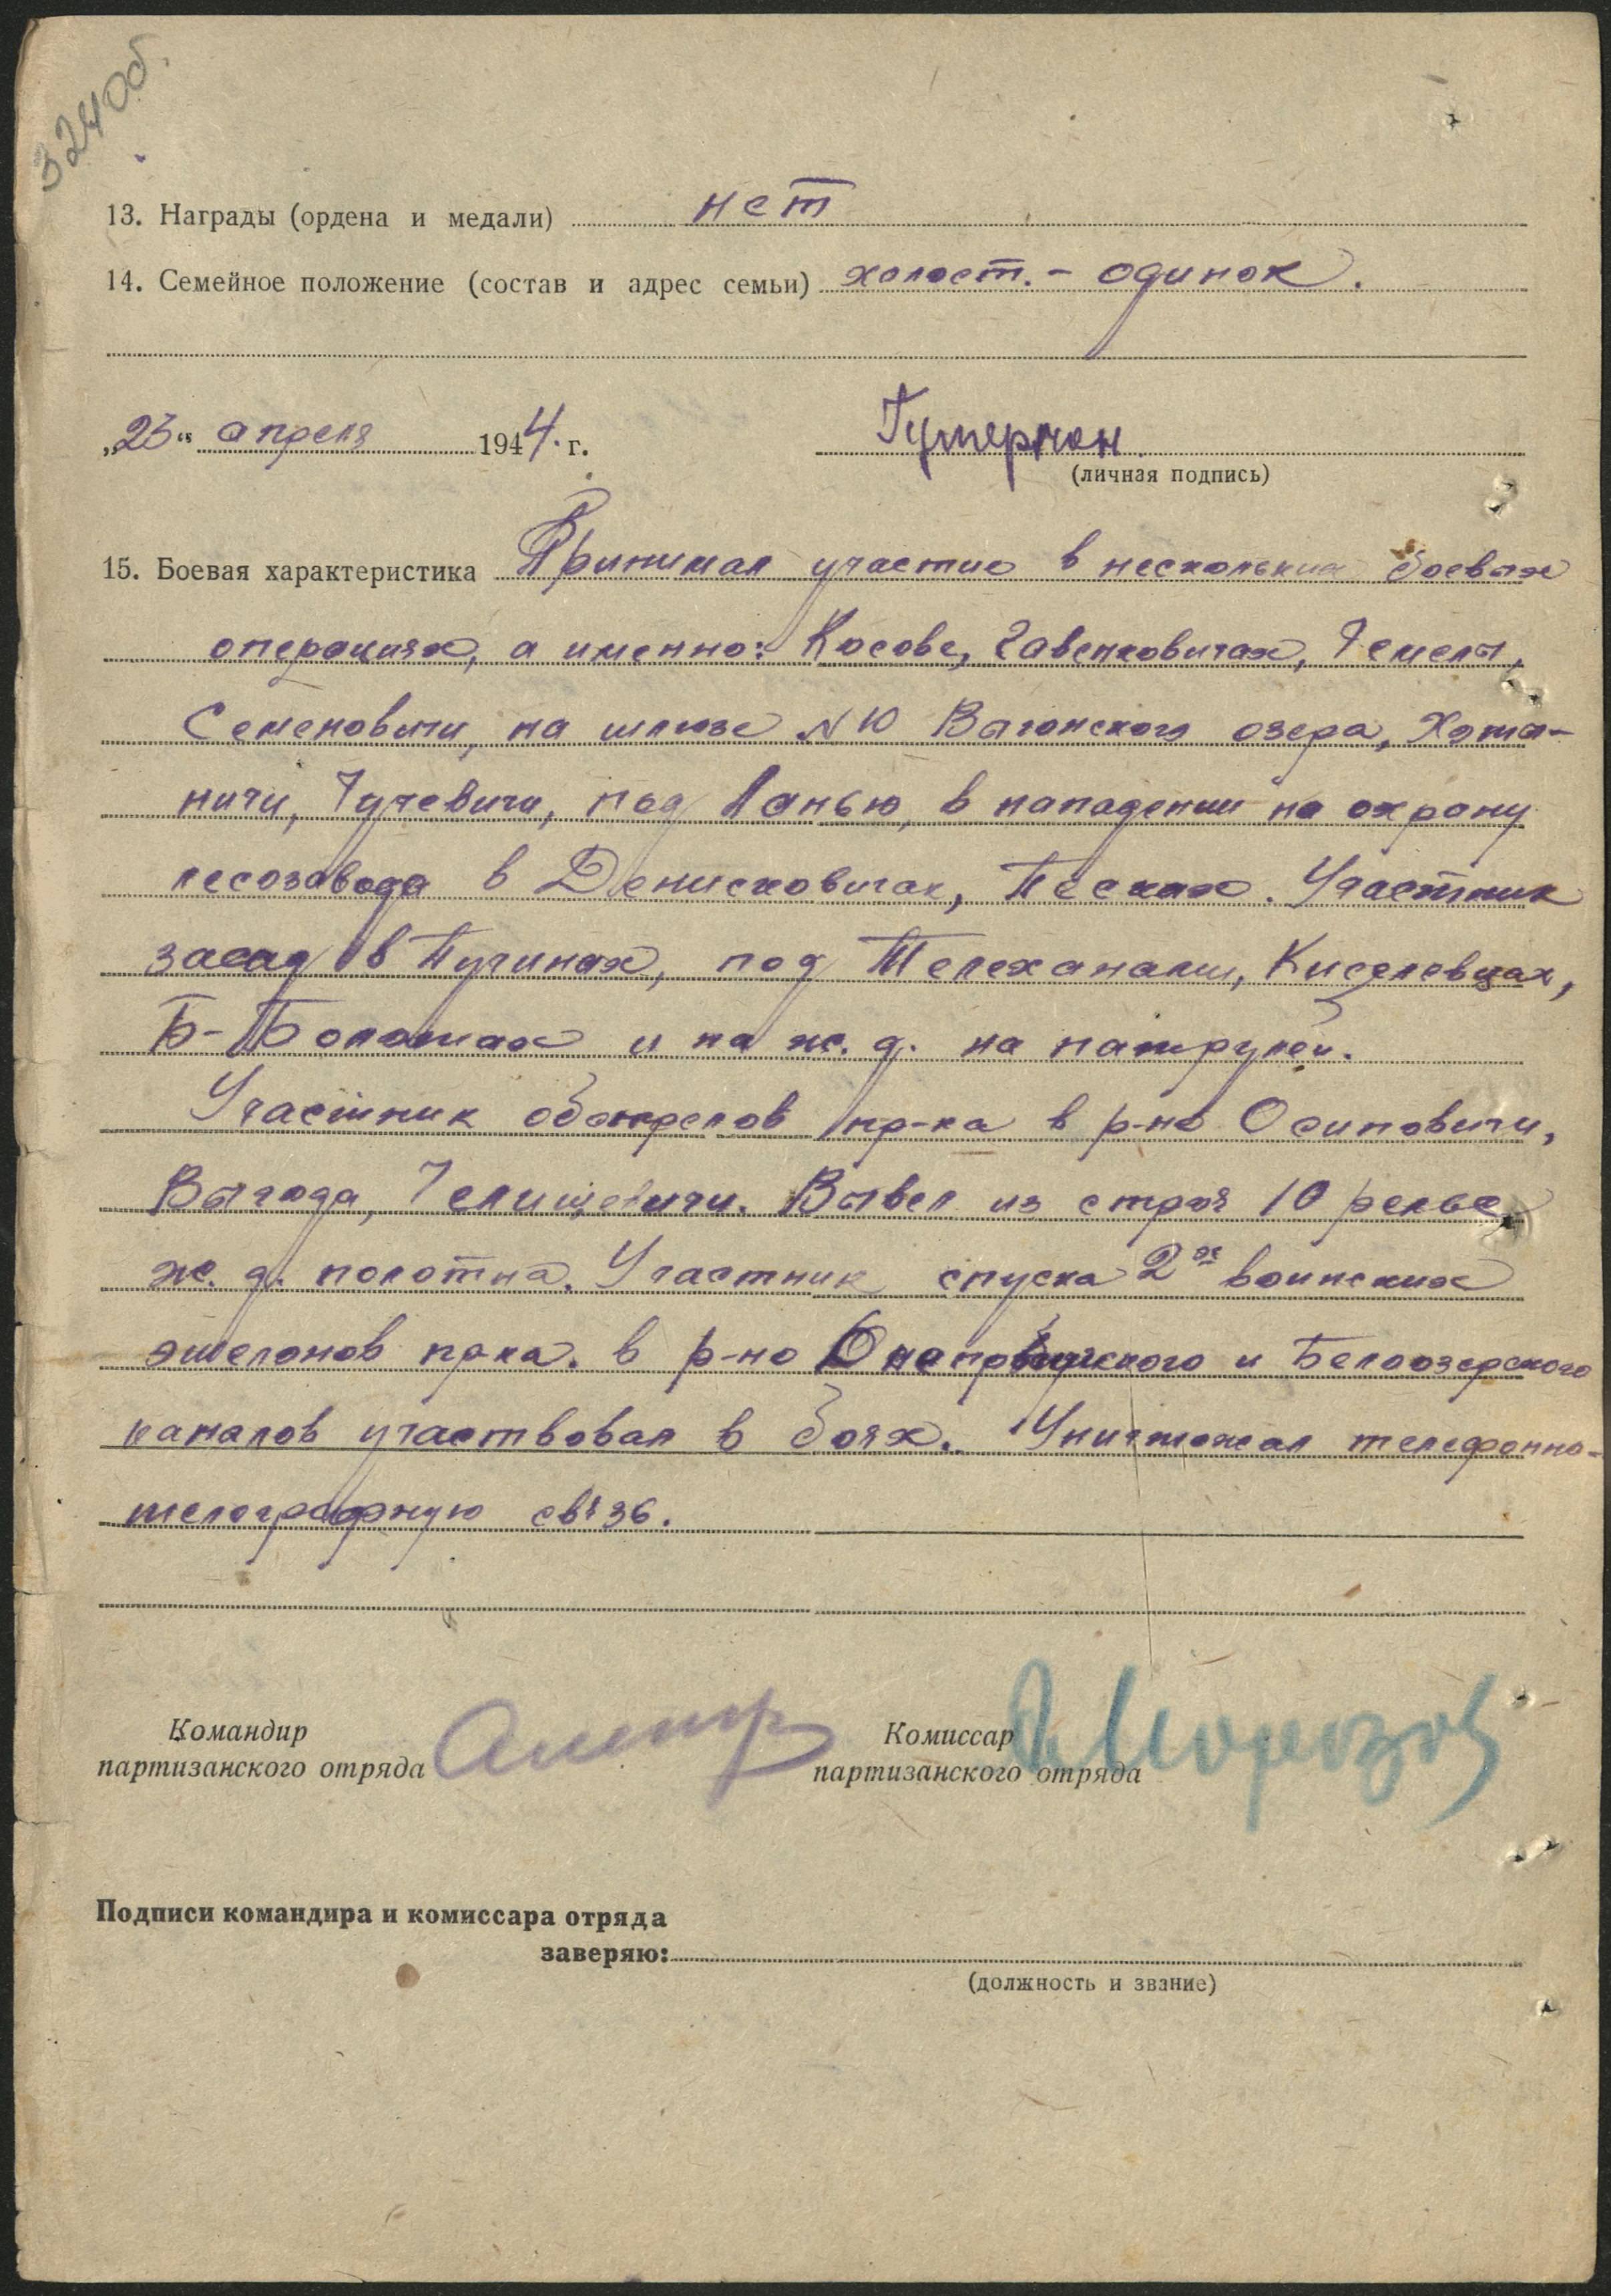 3240об.
13. Награды (ордена и медали) нет
14. Семейное положение (состав и адрес семьи) холост. - одинок.
„23“ апреля 1944. г. Гутерман
(личная подпись)
15. Боевая характеристика Принимал участие в нескольких боевых
операциях, а именно: Косове, Гавенковичах,
Семеновичи, на шлюзе №10 Выгонского озера, Хоты-
ничи, Чучевичи, под Ланью, в нападении на охрану
лесозавода в Денисковичах, Песках. Участник
засад в Пучинах, под Телеханами, Киселевцах,
Б-Болотах и на ж. д. на патрулей.
Участник обстрелов пр-ка в р-не Осиповичи,
Выгода, Челищевичи. Вывел из строя 10 рельс
ж. д. полотна. Участник спуска 2х воинских
эшелонов пр-ка. в р-но Днепробугского и Белоозерского
каналов участвовал в боях. Уничтожал телефонно-
телеграфную связь.
Командир
партизанского отряда
Комиссар Морозов
партизанского отряда
Подписи командира и комиссара отряда
заверяю:
(должность и звание)